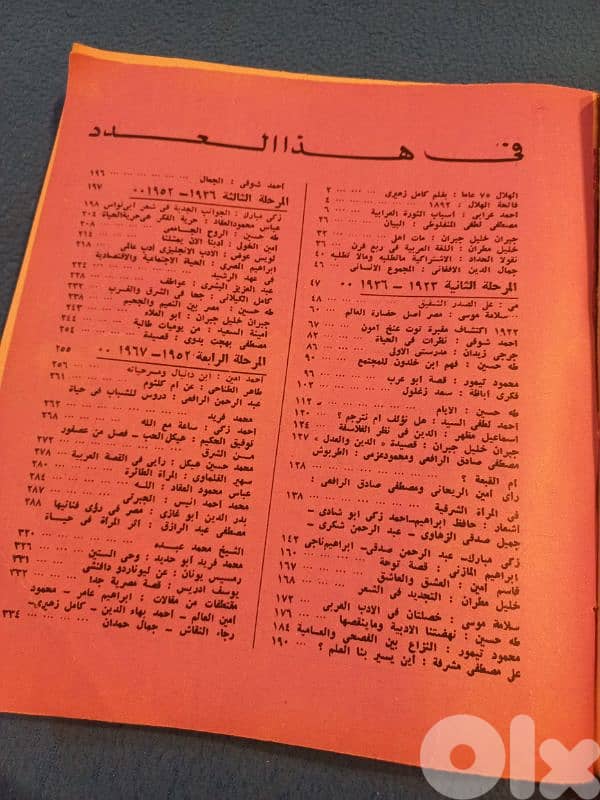 فى هذا العدد
الهلال ٧٥ عاما : بقلم كامل زهيرى ... ... ... ٢
فاتحة الهلال : ١٨٩٢ ... ... ... ٤
أحمد عرابى : أسباب الثورة العرابية ... ٦
مصطفى لطفى المنفلوطى : البيان ... ٢٦
جبران خليل جبران : مات أهلى ... ... ٣٢
خليل مطران : اللغة العربية فى ربع قرن ٣٦
نقولا الحداد : الاشتراكية ماتطلبه ومالا تطلبه ٤٠
جمال الدين الافغانى : المجموع الانسانى ... ٤٦
المرحلة الثانية ١٩٢٣ - ١٩٣٦ ٠٠ ٤٧
مى : على الصدر الشفيق ... ... ... ٤٨
سلامة موسى : مصر أصل حضارة العالم ... ٦٠
١٩٢٢ اكتشاف مقبرة توت عنخ آمون ٦٧
أحمد شوقى : نظرات فى الحياة ... ٨٢
جرجى زيدان : مدرستى الاولى ... ٨٦
طه حسين : فهم ابن خلدون للمجتمع ... ٩٠
محمود تيمور : قصة أبو عرب ... ... ٩٦
فكرى أباظة : سعد زغلول ... ... ١٠٢
طه حسين : الايام ... ... ... ١١٢
أحمد لطفى السيد : هل نؤلف أم نترجم ؟ ١٢٠
اسماعيل مظهر : الدين فى نظر الفلاسفة ١٢٤
جبران خليل جبران : قصيدة « الدين والعدل » ١٢٧
مصطفى صادق الرافعى ومحمودعزمى : الطربوش
أم القبعة ؟ ... ... ... ١٢٨
رأى أمين الريحانى ومصطفى صادق الرافعى :
فى المرأة الشرقية ... ... ... ١٣٨
أشعار : حافظ ابراهيم-أحمد زكى أبو شادى -
جميل صدقى الزهاوى - عبد الرحمن شكرى -
زكى مبارك- عبد الرحمن صدقى- ابراهيم ناجى ١٤٢
ابراهيم المازنى : قصة توحة ... ... ١٦٠
قاسم أمين : العشق والعاشق ... ... ١٦٧
خليل مطران : التجديد فى الشعر ... ١٦٨
سلامة موسى : خصلتان فى الادب العربى ١٧٢
طه حسين : نهضتنا الادبية وماينقصها ١٧٦
محمود تيمور : النزاع بين الفصحى والعامية ١٨٤
على مصطفى مشرفة : أين يسير بنا العلم ؟ ١٩٠
أحمد شوقى : الجمال ... ... ... ١٩٦
المرحلة الثالثة ١٩٣٦ - ١٩٥٢ ٠٠ ١٩٧
زكى مبارك : الجوانب الجدية فى شعر أبى نواس ١٩٨
عباس محمود العقاد : حرية الفكر هى حرية الحياة ٢٠٤
طه حسين : الروح الجامعى ... ... ٢٠٨
أمين الخولى : أدبنا الآن يمثلنا ... ٢١٤
لويس عوض : الادب الانجليزى أدب عالمى ٢١٨
ابراهيم المصرى : الحياة الاجتماعية والاقتصادية
فى عهد الرشيد ... ... ...
عبد العزيز البشرى : عواطف ...
كامل الكيلانى : جحا فى الشرق والغرب
طه حسين : مصر بين النعيم والجحيم ٢٣٨
جبران خليل جبران : أبو العلاء ...
أمينة السعيد : من يوميات طالبة ... ٢٤٤
مصطفى بهجت بدوى : قصيدة ... ٢٥٤
المرحلة الرابعة ١٩٥٢ - ١٩٦٧ ٠٠ ٢٥٥
أحمد أمين : ابن دانيال ومسرحياته ... ٢٥٦
طاهر الطناحى : عن أم كلثوم ... ٢٦١
عبد الرحمن الرافعى : دروس للشباب فى حياة
محمد فريد ... ... ... ٢٦٢
أحمد زكى : ساعة مع الله ... ... ٢٦٨
توفيق الحكيم : هيكل الحب - فصل من عصفور
من الشرق ... ... ... ٢٧٢
محمد حسين هيكل : رأيى فى القصة العربية ٢٧٨
سهير القلماوى : المرأة الطائرة ... ٢٨٠
عباس محمود العقاد : الله ... ... ٢٨٤
محمد أحمد أنيس : الجبرتى ... ٢٨٧
بدر الدين أبو غازى : مصر فى رؤى فنانيها ٢٨٨
مصطفى عبد الرازق : أثر المرأة فى حياة
الشيخ محمد عبده ... ... ٣٢٠
محمد فريد أبو حديد : وحى الستين ... ٣٢٦
رمسيس يونان : عن ليوناردو دافنشى ٣٣١
يوسف ادريس : قصة مصرية جدا ... ٣٣٢
مقتطفات من مقالات : ابراهيم عامر - محمود
أمين العالم - أحمد بهاء الدين - كامل زهيرى-
رجاء النقاش - جمال حمدان ... ٣٣٤
OLX